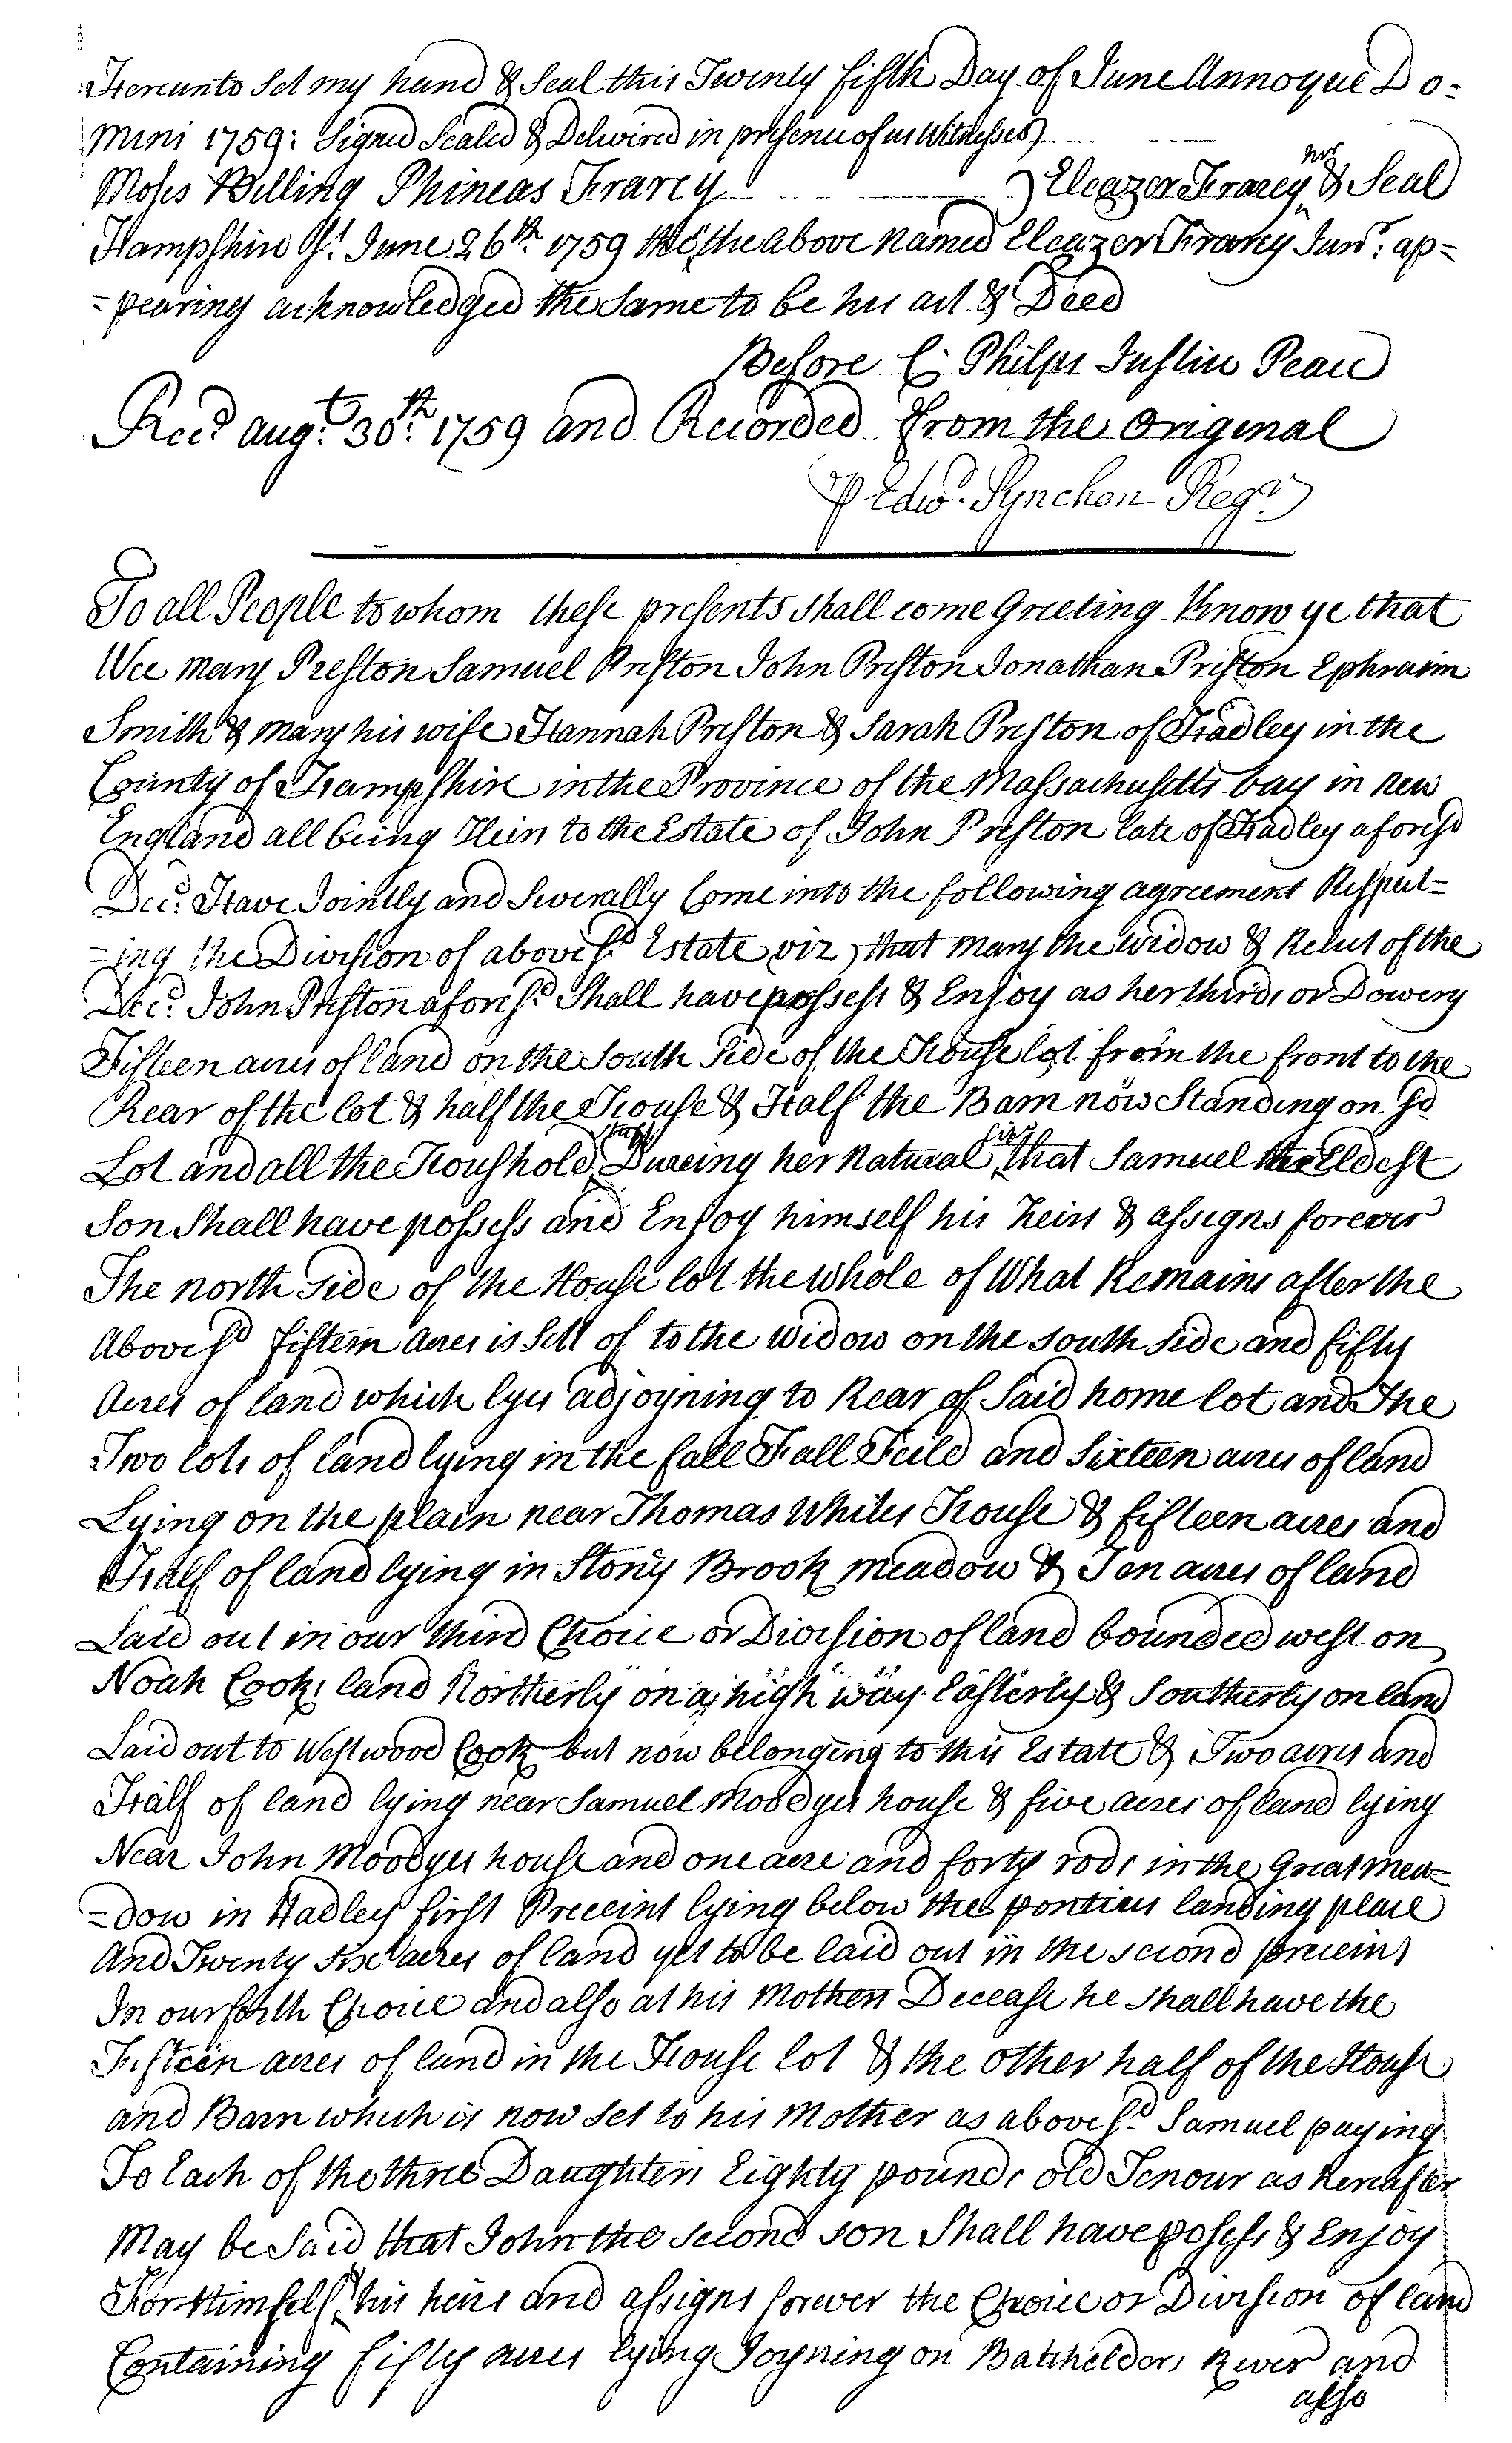 Hereunto Set my hand & Seal this Twenty fifth Day of June Annoque Do=
mini 1759: Signed Sealed & Delivered in presence of us Witnesses)
Moses Billing Phineas Frarey ) Eleazer Frarey Junr & Seal
Hampshire Ss. June 26th. 1759 the above Named Eleazer Frarey Junr. ap=
=pearing acknowledged the Same to be his act & Deed
Before E: Phelps Justice Peace
Recd. augt. 30th. 1759 and Recorded from the Original
P Edwd. Pynchon Regr.
To all People to whom these presents shall come Greeting Know ye that
Wee Mary Preston Samuel Preston John Preston Jonathan Preston Ephraim
Smith & Mary his wife Hannah Preston & Sarah Preston of Hadley in the
County of Hampshire in the Province of the Massachusetts bay in New
England all being Heirs to the Estate of John Preston late of Hadley aforesd
Decd. Have Jointly and Severally Come into the following agreement Respect=
=ing the Division of abovesd. Estate viz, that Mary the widow & Relict of the
Decd. John Preston aforesd. Shall have possess & Enjoy as her thirds or Dowery
Fifteen acres of land on the South Side of the House lot from the front to the
Rear of the lot & half the House & Half the Barn now Standing on sd
Lot and all the Houshold Stuff Dureing her Natural life that Samuel the Eldest
Son Shall have possess and Enjoy himself his heirs & assigns forever
The north Side of the House lot the whole of What Remains after the
Abovesd fifteen Acres is Sett of to the widow on the south side and fifty
Acres of land which lyes adjoyning to Rear of Said home lot and The
Two lots of land lying in the fall Fall Feild and Sixteen acres of land
Lying on the plain near Thomas Whites House & fifteen acres and
Half of land lying in Stony Brook meadow & Ten acres of land
Laid out in our third Choice or Division of land bounded west on
Noah Cooks land Northerly on a high way Easterly & Southerly on land
Laid out to Westwood Cook but now belonging to this Estate & Two acres and
Half of land lying near Samuel Moodyes house & five acres of land lying
Near John Moodyes house and one acre and forty rods in the Great Mea=
=dow in Hadley first Precinct lying below the pontius landing place
And Twenty six acres of land yet to be laid out in the second precinct
In our forth Choice and also at his Mothers Decease he shall have the
Fifteen acres of land in the House lot & the other half of the House
and Barn which is now Set to his Mother as abovesd. Samuel paying
To Each of the three Daughters Eighty pounds old Tenour as hereafter
May be Said that John the second son Shall have posess & Enjoy
For Himself his heirs and assigns forever the Choice or Division of land
Containing fifty acres lying Joyning on Batchelders River and
also